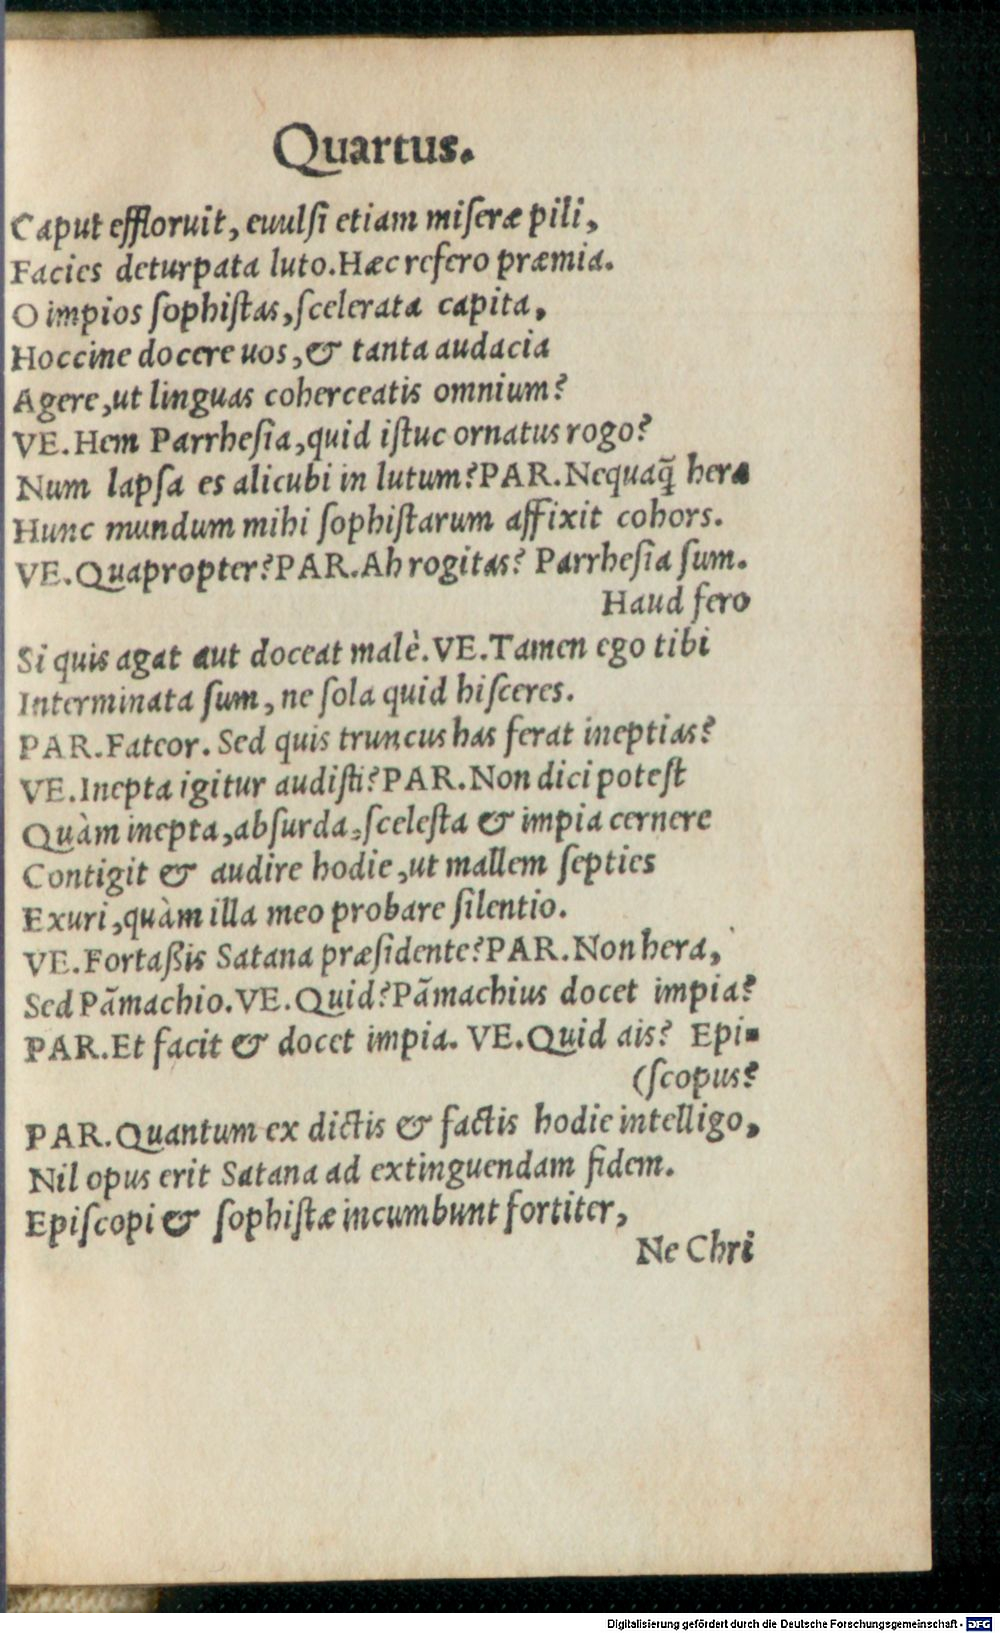 Quartus.
Caput effloruit, euulsi etiam miseræ pili,
Facies deturpata luto. Hæc refero præmia.
O impios sophistas, scelerata capita,
Hoccine docere uos, & tanta audacia
Agere, ut linguas coherceatis omnium?
VE. Hem Parrhesia, quid istuc ornatus rogo?
Num lapsa es alicubi in lutum? PAR. Nequaq̃ hera
Hunc mundum mihi sophistarum affixit cohors.
VE. Quapropter? PAR. Ah rogitas? Parrhesia sum.
Haud fero
Si quis agat aut doceat malè. VE. Tamen ego tibi
Interminata sum, ne sola quid hisceres.
PAR. Fateor. Sed quis truncus has ferat ineptias?
VE. Inepta igitur audisti? PAR. Non dici potest
Quàm inepta, absurda, scelesta & impia cernere
Contigit & audire hodie, ut mallem septies
Exuri, quàm illa meo probare silentio.
VE. Fortaßis Satana præsidente? PAR. Non hera,
Sed Pãmachio. VE. Quid? Pãmachius docet impia?
PAR. Et facit & docet impia. VE. Quid ais? Epi-
(scopus?
PAR. Quantum ex dictis & factis hodie intelligo,
Nil opus erit Satana ad extinguendam fidem.
Episcopi & sophistæ incumbunt fortiter,
Ne Chri
Digitalisierung gefördert durch die Deutsche Forschungsgemeinschaft - DFG